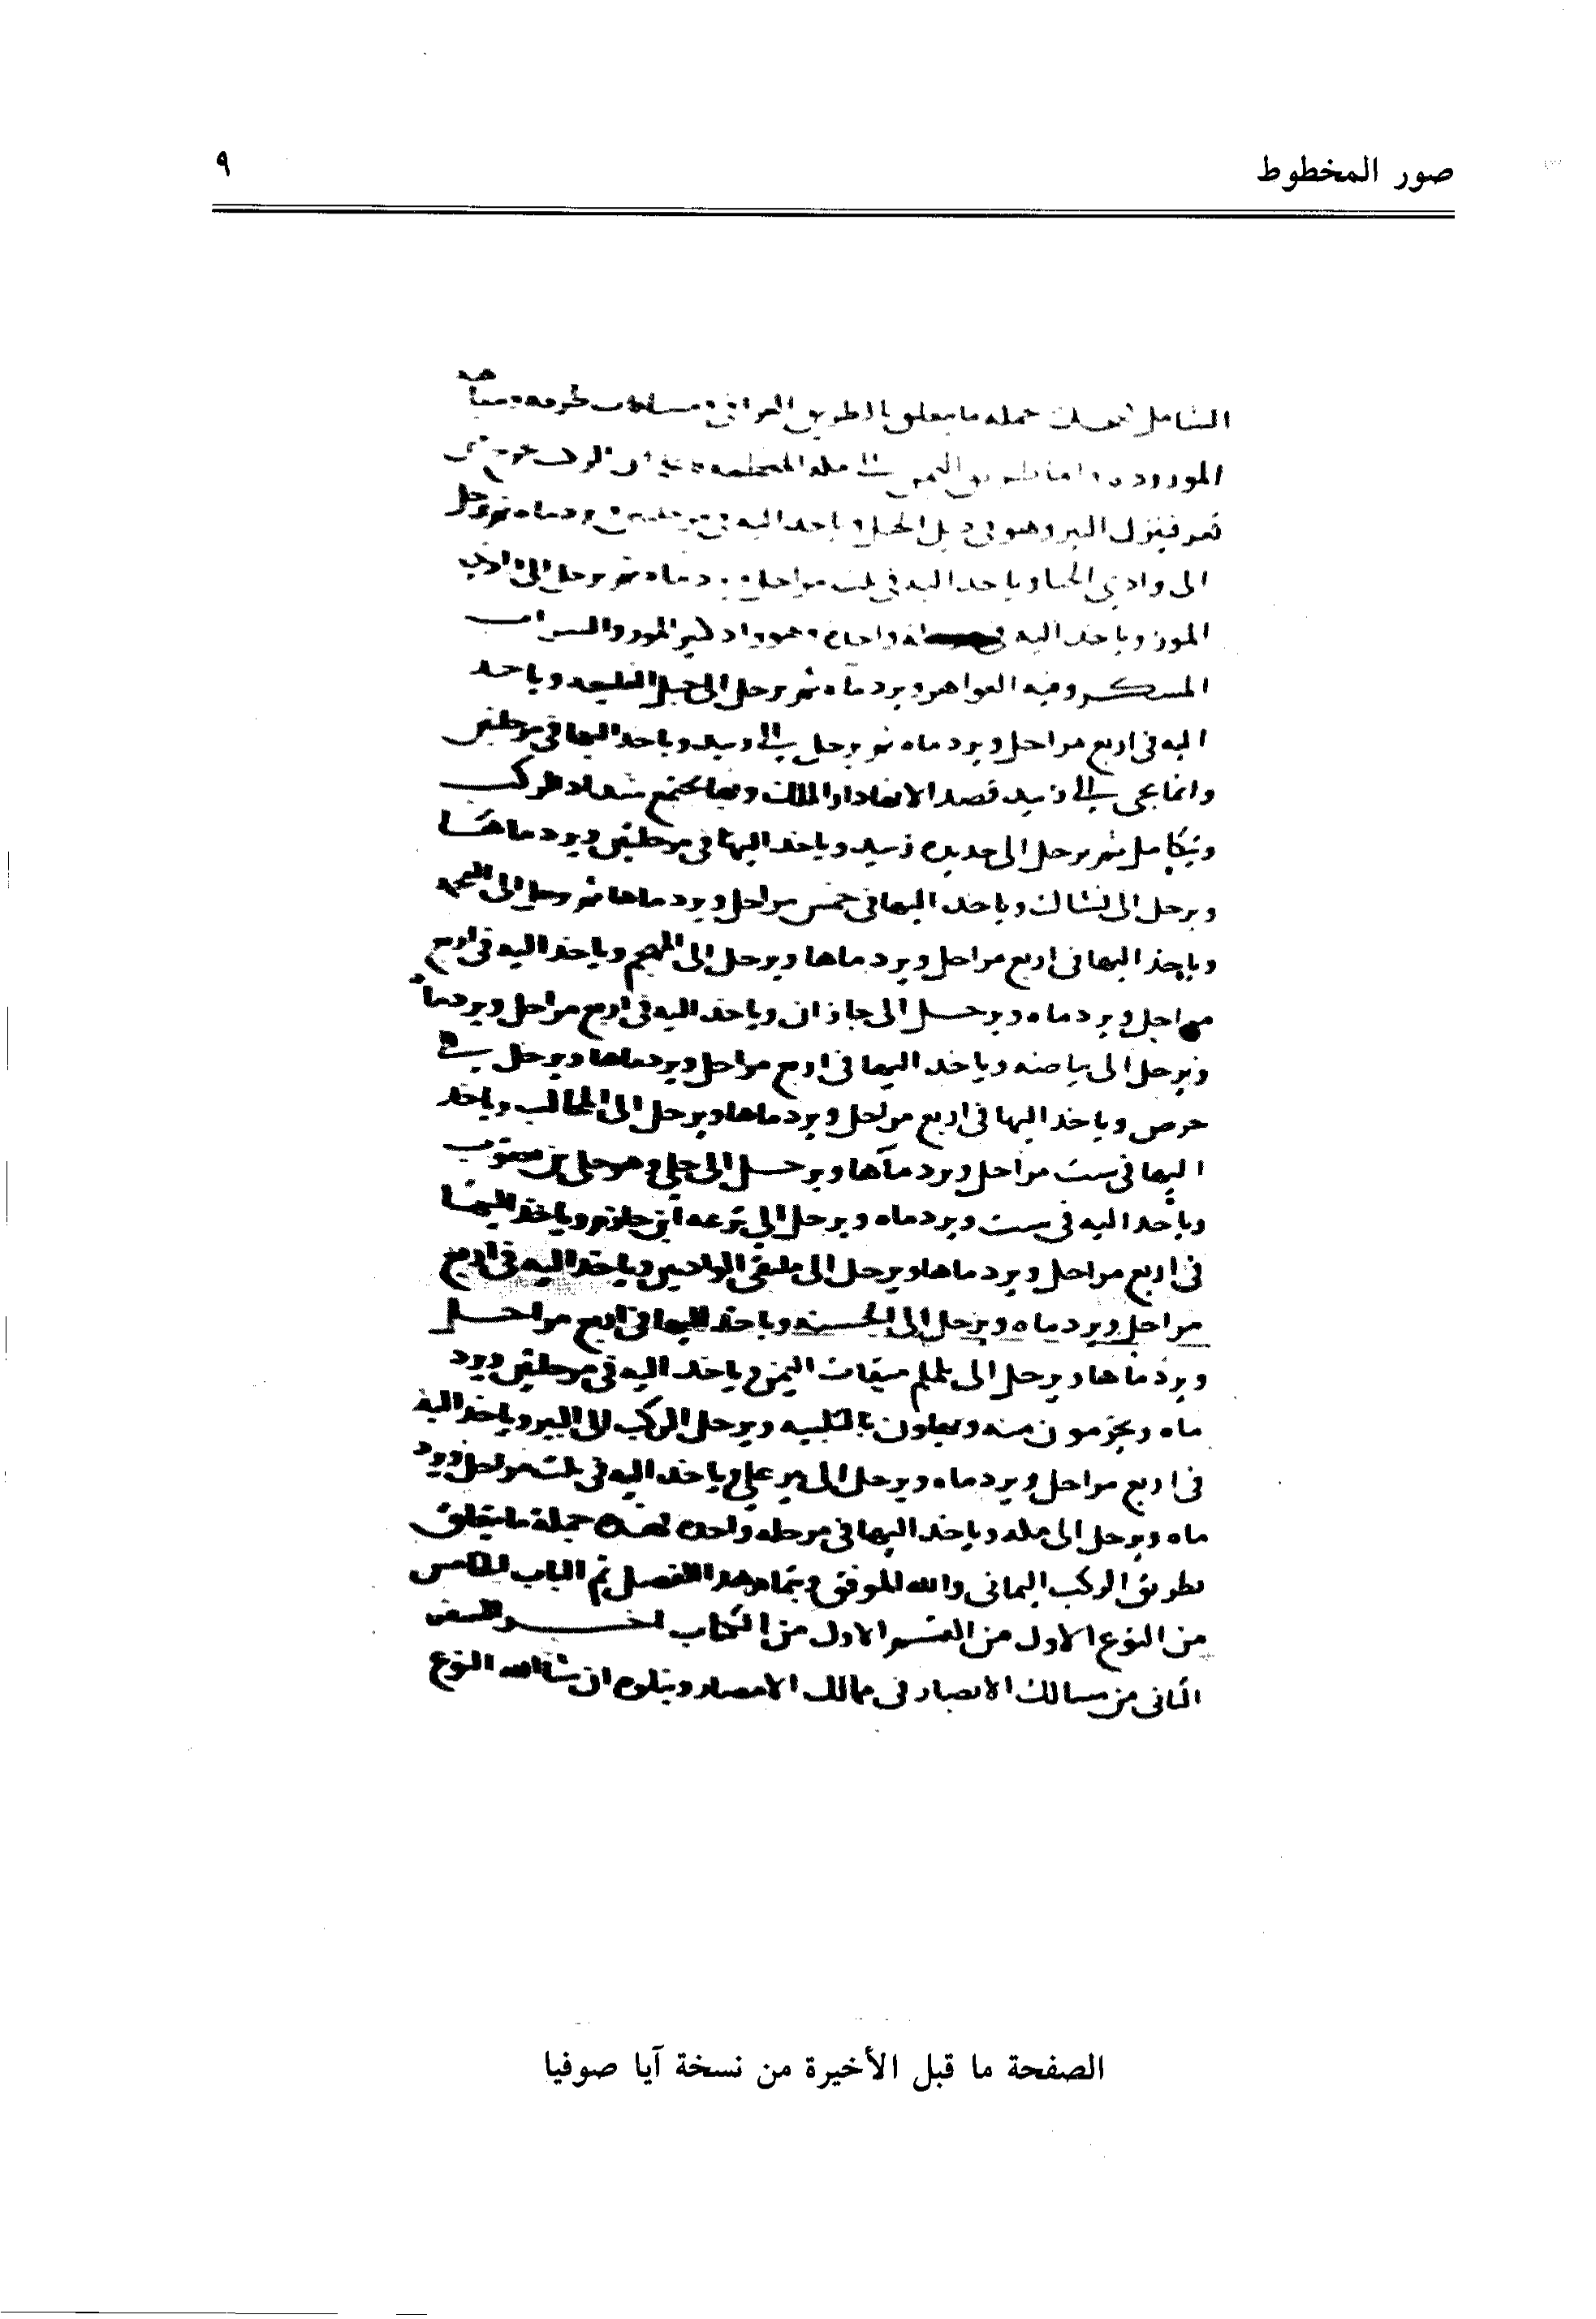 صور المخطوط
٩
الشامل جملة ما يتعلق بالطريق العراقي
المورود واما طريق اليمن
تعز فينزل البير وهو في ذيل الجبل وياخد اليه في ويرد ماه ثم يرحل
الى وادي الحسا وياخد اليه في ثلث مراحل ويرد ماه ثم يرحل الى وادي
الموز وياخد اليه في وهو واد كثير الموز والسراب
المسكر وفيه العواهر ويرد ماه ثم يرحل الى جبل وياخد
اليه في اربع مراحل ويرد ماه ثم يرحل الى زبيد وياخد اليها في مرحلتين
وانما يجى الى زبيد قصدا لانها دار الملك وبها يجتمع شعاد الركب
ويتكامل ثم يرحل الى جديده زبيد وياخد اليها في مرحلتين ويرد ماها
ويرحل الى فشال وياخد اليها في خمس مراحل ويرد ماها ثم يرحل الى
وياخذ اليها في اربع مراحل ويرد ماها ويرحل الى المهجم وياخد اليه في اربع
مراحل ويرد ماه ويرحل الى جازان وياخد اليه في اربع مراحل ويرد ماه
ويرحل الى بياضه وياخد اليها في اربع مراحل ويرد ماها ويرحل الى
حرض وياخد اليها في اربع مراحل ويرد ماها ويرحل الى المحالب وياخد
اليها في ست مراحل ويرد ماها ويرحل الى حلي وهو حلي بن يعقوب
وياخد اليه في ست ويرد ماه ويرحل الي ترعه ابن وياخد اليها
في اربع مراحل ويرد ماها ويرحل الى ملتقى الوادين وياخد اليه في اربع
مراحل ويرد ماه ويرحل الى الحسنه وياخد اليها في اربع مراحل
ويرد ماها ويرحل الى يلملم ميقات اليمن وياخد اليه في مرحلتين ويرد
ماه ويحرمون منه ويعلون بالتلبيه ويرحل الركب الى البير وياخد اليه
في اربع مراحل ويرد ماه ويرحل الى بير علي وياخد اليه في ثلث مراحل ويرد
ماه ويرحل الى مكه وياخد اليها في مرحله واحده فهذه جملة ما يتعلق
بطريق الركب اليماني والله الموفق وبتمام هدا الفصل تم الباب الخامس
من النوع الاول من القسم الاول من الكتاب اخر السفر
الثاني من مسالك الابصار في ممالك الامصار ويتلوه ان شا الله النوع
الصفحة ما قبل الأخيرة من نسخة آيا صوفيا